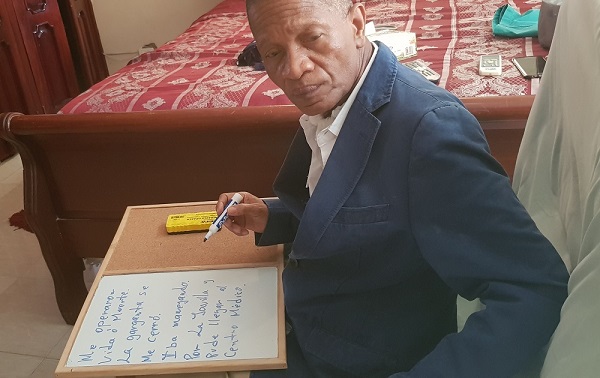 Me operaron
Vida ó Muerte.
La garganta se
Me cerró.
Iba manejando
Por La Isavila y
Pude llegar al
Centro Médico.